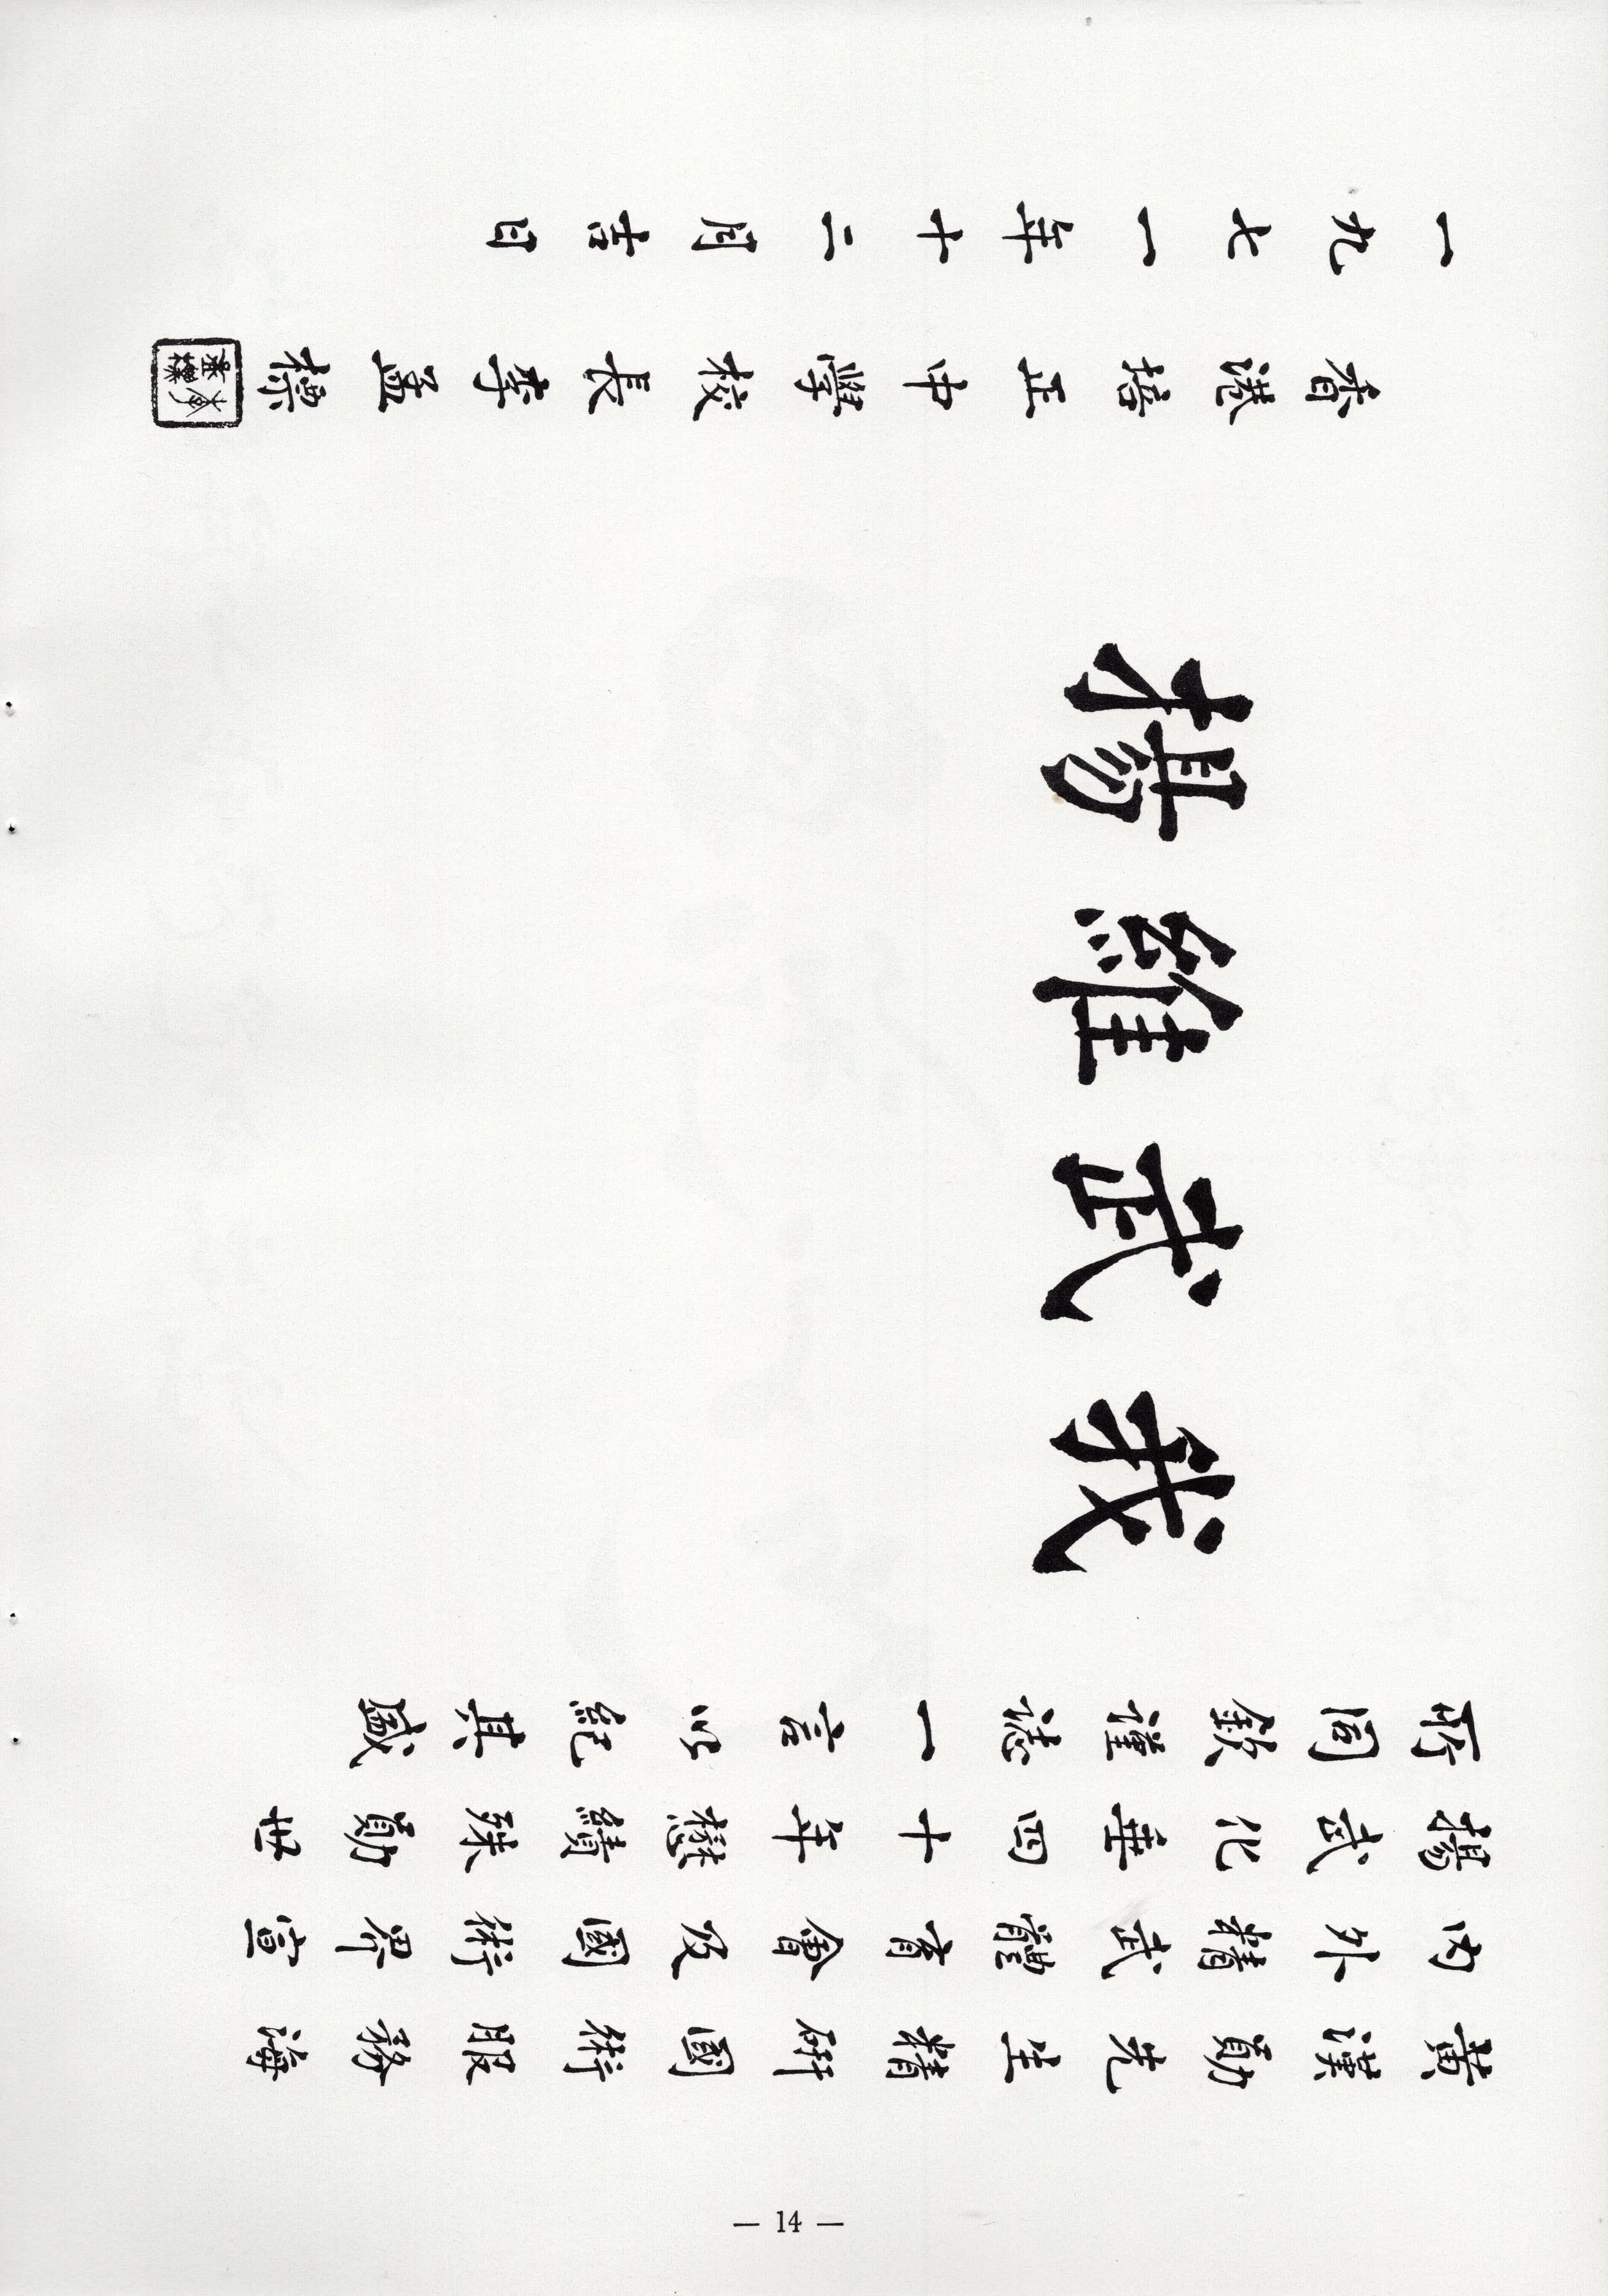 黃漢勛先生精研國術服務海
內外精武體育會及國術界宣
揚武化華四十年懋績殊勛世
所同欽謹誌一言以紀其盛
我武維揚
香港培正中學校長李孟標
一九七一年十二月吉日
— 14 —